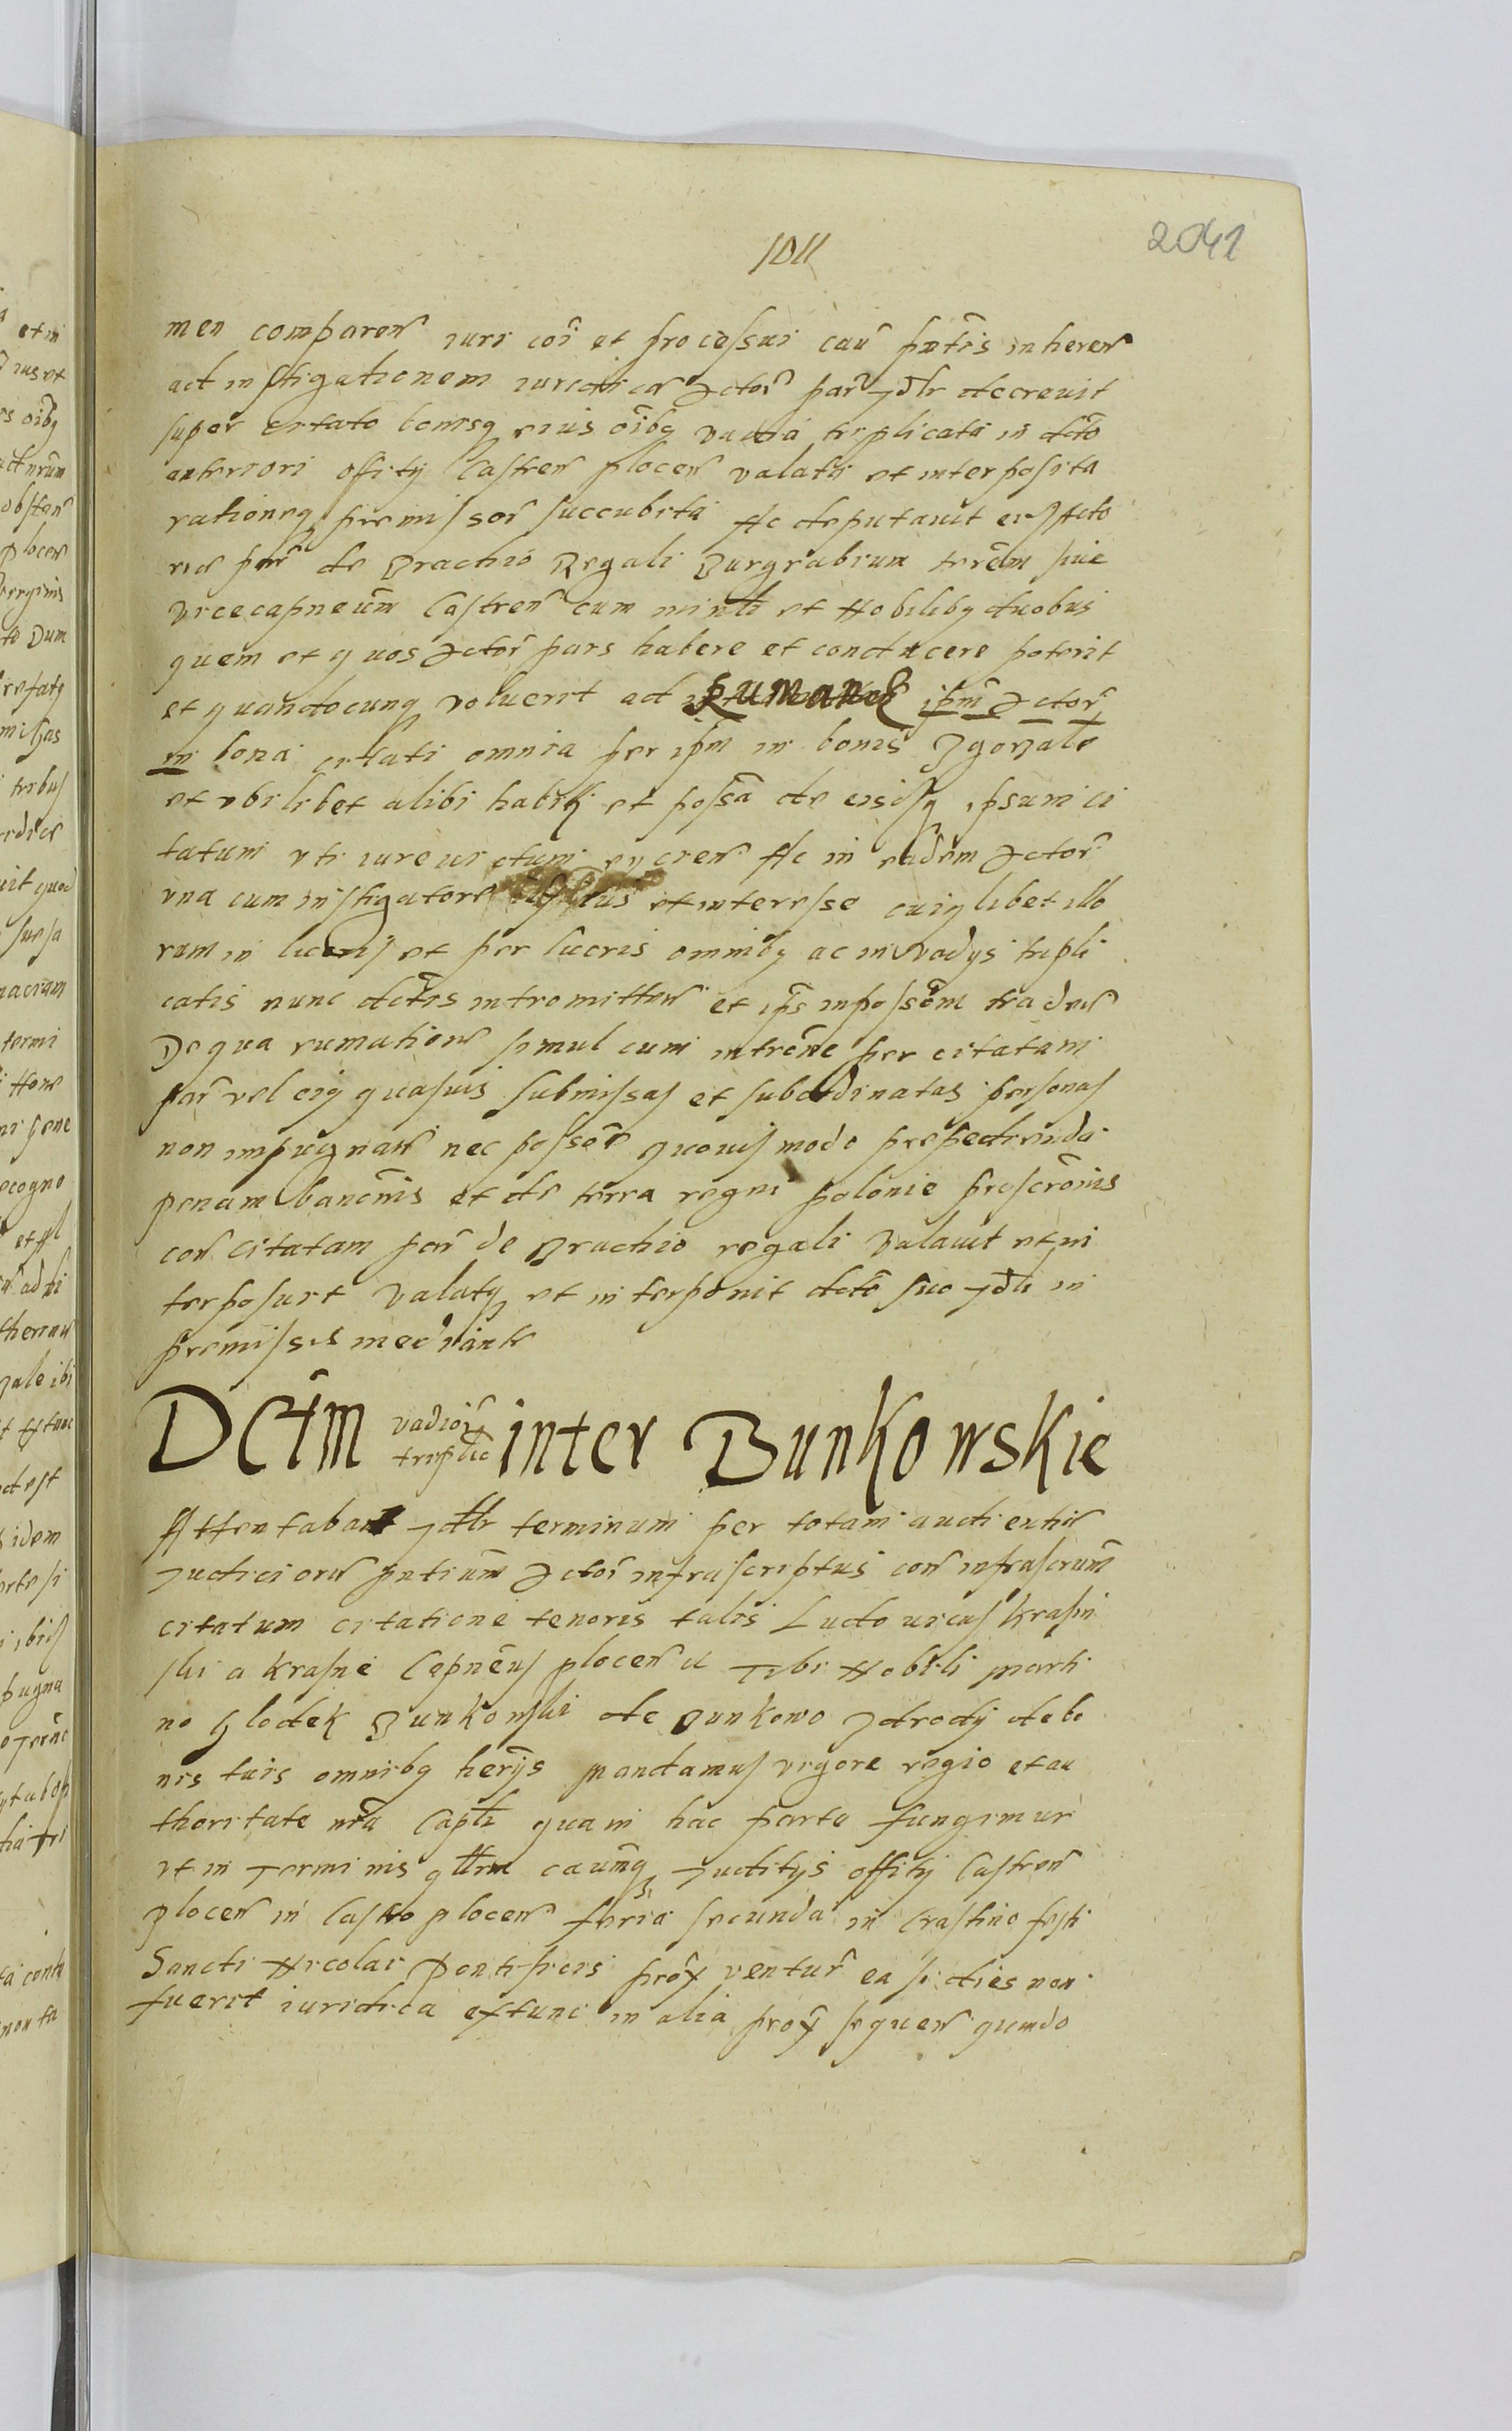 1011
2041
men comparen iuri coi et processui cau pntis inheren
ad instigationem iuridicā Actor par Idlr decreuit
super citato bonisq eius oībq vadia triplicata in dcto
anteriori offitij Castren plocen valata et interposita
rationeq premissor succubita Ac deputauit eis Acto
rie par de Brachio Regali Burgrabium terēm siue
vicecapneūm Castren cum minlī et Nobilibq duobus
quem et quos Actor pars habere et conducere poterit
et quandocunq voluerit ad Rumanā ipm Actor
in bona citati omnia per ipm in bonis Zgorzale
et vbilibet alibi habita et possā de eisdq ipsum ci
tatum vti iureuictum eycien Ac in eadem Actor
vna cum instigatore et interesse cuiqlibet illo
rum in lucris et per lucris omnibq ac in vadijs tripli
catis nunc dctis intromitten et ips in possōm traden
De qua rumatione simul cum intrōne per citatam
par vel eiq quasuis submissas et subordinatas personas
non impugnan nec possōr quouis modo prepedienda
penam bancōnis et de terra regni polonie proscrōnis
con citatam par de Brachio regali valauit et in
terposuit valatq et interponit dcto suo Idli in
premissis mediante
Dctm vadiōr triplic inter Bunkowskie
Attentabat Idlr terminum per totam audientiā
Iudiciorū pntium Actor infrascriptus con infrascrūm
citatum citatione tenoris talis Ludouicus Krasin
ski a Krasne Capnēus plocen &c Tibi Nobili Marti
no Glodek Bunkowski de Bunkowo Zdrody de bo
nis tuis omnibq herijs Mandamus vigore regio et au
thoritate nrā Caplī qua in hac parte fungimur
vt in Terminis qllrm caūmq Iuditijs offitij Castren
plocen in Castro plocen feria secunda in Crastino festi
Sancti Nicolai Pontificis prox ventur ea si dies non
fuerit iuridica extunc in alia prox sequen quando